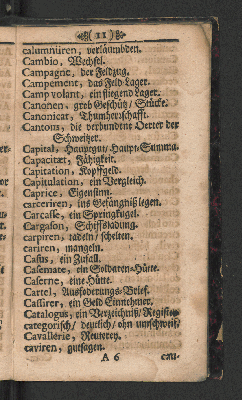 ( 11 )
calumniiren, verläumbden.
Cambio, Wechsel.
Campagne, der Feldzug.
Campement, das Feld-Lager.
Camp volant, ein fliegend Lager.
Canonen, grob Geschütz / Stücke.
Canonicat, Thumherrschafft.
Cantons, die verbundene Oerter der
Schweitzer.
Capital, Hauptgut / Haupt-Summa.
Capacitæt, Fähigkeit.
Capitation, Kopffgeld.
Capitulation, ein Vergleich.
Caprice, Eigensinn.
carceriren, ins Gefängniß legen.
Carcasse, ein Springkugel.
Cargason, Schiffsladung.
carpiren, tadeln / schelten.
cariren, mangeln.
Casus, ein Zufall.
Casemate, ein Soldaten-Hütte.
Caserne, eine Hütte.
Cartel, Ausfoderungs-Brief.
Cassirer, ein Geld Einnehmer.
Catalogus, ein Verzeichniß / Register.
categorisch / deutlich / ohn umschweif /
Cavallerie, Reuterey.
caviren, gutsagen.
A 6 cau-